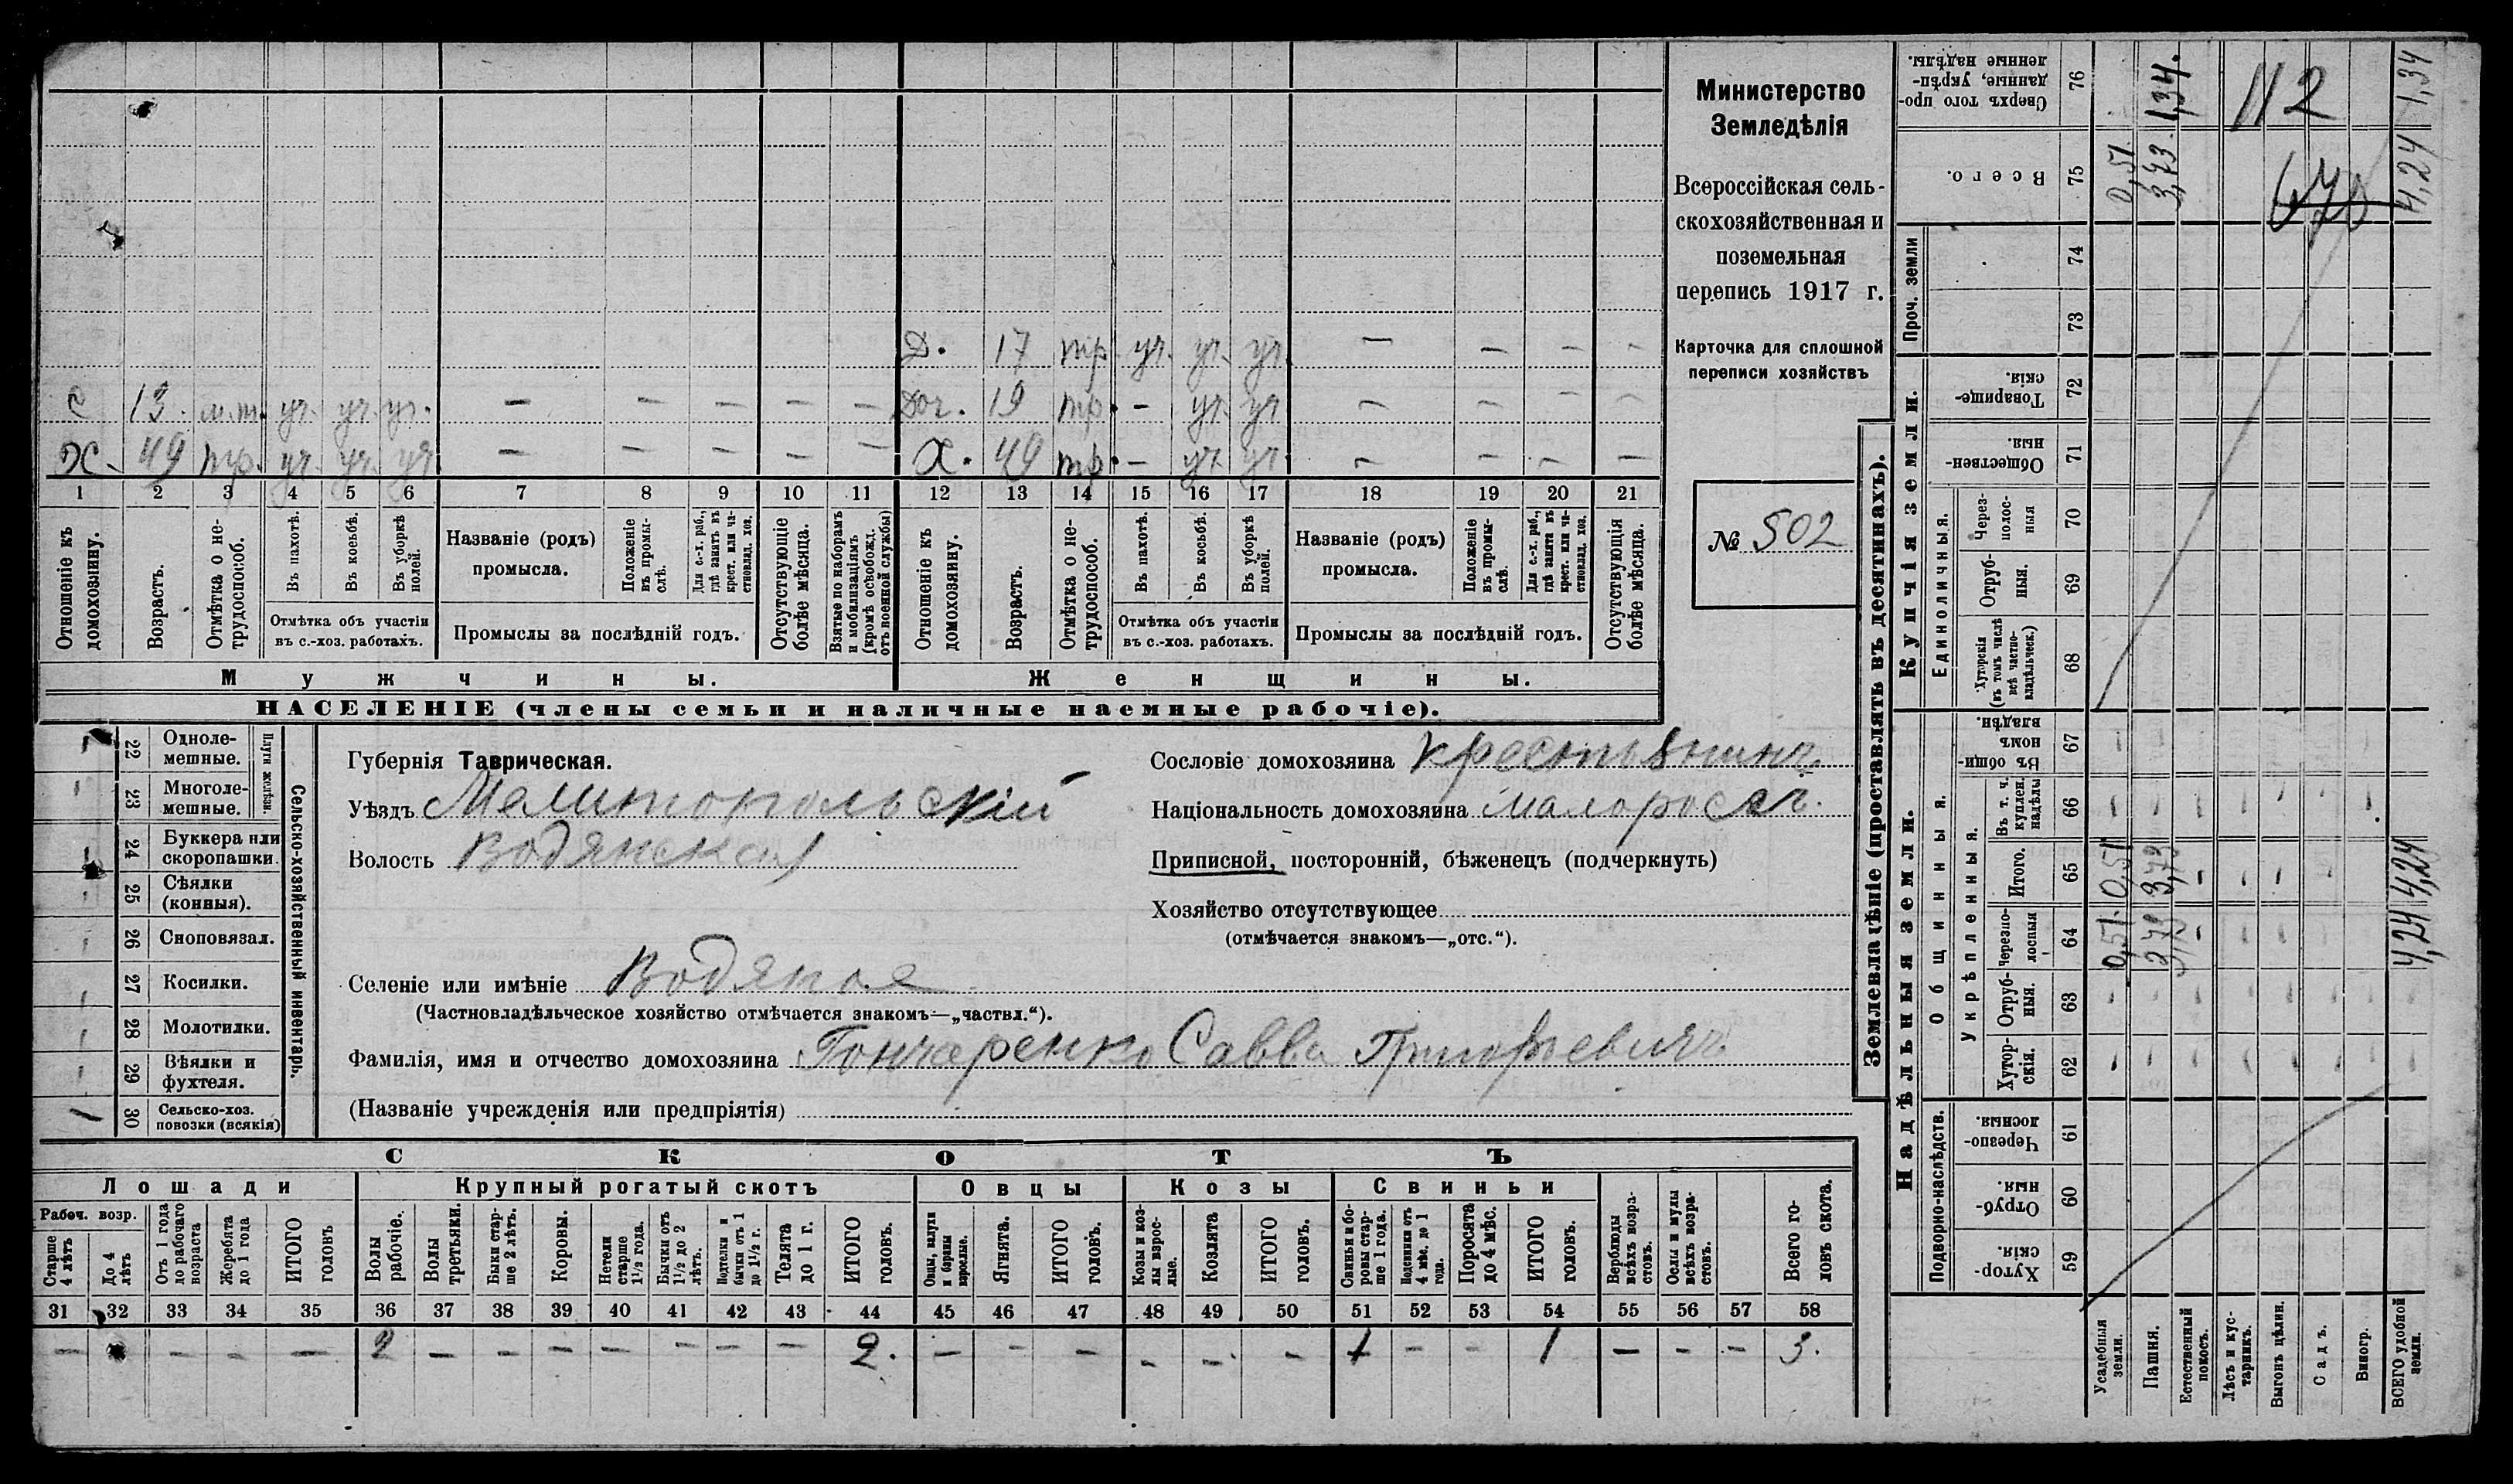 Министерство
Земледѣлія
Всероссійская сель-
скохозяйственная и
поземельная
перепись 1917 г.
Карточка для сплошной
переписи хозяйствъ
№ 502
Д. 17 тр. уч. уч. уч. — — — —
С 13. м.т. уч. уч. уч. — — — — — Доч. 19 тр. — уч. уч — — — —
Х. 49 тр. уч. уч. уч — — — — — Х. 49 тр. — уч. уч. — — — —
1 2 3 4 5 6 7 8 9 10 11 12 13 14 15 16 17 18 19 20 21
Отношеніе къ домохозяину.
Возрастъ.
Отмѣтка о не-трудоспособ.
Въ пахотѣ.
Въ косьбѣ.
Въ уборкѣ полей.
Отмѣтка объ участіи
въ с.-хоз. работахъ.
Названіе (родъ)
промысла.
Положеніе въ промы-слѣ.
Для с.-х. раб., гдѣ занятъ въ крест. или ча-стновлад. хоз.
Промыслы за послѣдній годъ.
Отсутствующіе болѣе мѣсяца.
Взятые по наборамъ и мобилизаціямъ (кромѣ освобожд. отъ военной службы)
Отношеніе къ домохозяину.
Возрастъ.
Отмѣтка о не-трудоспособ.
Въ пахотѣ.
Въ косьбѣ.
Въ уборкѣ полей.
Отмѣтка объ участіи
въ с.-хоз. работахъ.
Названіе (родъ)
промысла.
Положеніе въ промы-слѣ.
Для с.-х. раб., гдѣ занята въ крест. или ча-стновлад. хоз.
Промыслы за послѣдній годъ.
Отсутствующія болѣе мѣсяца.
Мужчины. Женщины.
НАСЕЛЕНІЕ (члены семьи и наличные наемные рабочіе).
Сельско-хозяйственный инвентарь.
Плуги желѣзн.
22 Одноле-мешные.
23 Многоле-мешные.
24 Буккера или скоропашки.
25 Сѣялки (конныя).
26 Сноповязал.
27 Косилки.
28 Молотилки.
29 Вѣялки и фухтеля.
30 Сельско-хоз. повозки (всякія)
Губернія Таврическая.
Уѣздъ Мелитопольскій
Волость Водянская
Сословіе домохозяина крестьянинъ
Національность домохозяина малороссъ.
Приписной, посторонній, бѣженецъ (подчеркнуть)
Хозяйство отсутствующее
(отмѣчается знакомъ—„отс.“).
Селеніе или имѣніе Водяное
(Частновладѣльческое хозяйство отмѣчается знакомъ—„частвл.“).
Фамилія, имя и отчество домохозяина Гончаренко Савва Григорьевичъ
(Названіе учрежденія или предпріятія)
СКОТЪ
Лошади Крупный рогатый скотъ Овцы Козы Свиньи
Рабоч. возр.
Старше 4 лѣтъ
До 4 лѣтъ
Отъ 1 года до рабочаго возраста
Жеребята до 1 года
ИТОГО головъ
Волы рабочіе.
Волы третьяки.
Быки стар-ше 2 лѣтъ.
Коровы.
Нетели старше 1½ года.
Бычки отъ 1½ до 2 лѣтъ.
Подтелки и бычки отъ 1 до 1½ г.
Телята до 1 г.
ИТОГО головъ.
Овцы, валухи и бараны взрослые.
Ягнята.
ИТОГО головъ.
Козы и коз-лы взрос-лые.
Козлята
ИТОГО головъ.
Свиньи и бо-ровы стар-ше 1 года.
Подсвинки отъ 4 мѣс. до 1 года.
Поросята до 4 мѣс.
ИТОГО головъ.
Верблюды всѣхъ возра-стовъ.
Ослы и мулы всѣхъ возра-стовъ.
Всего го-ловъ скота.
31 32 33 34 35 36 37 38 39 40 41 42 43 44 45 46 47 48 49 50 51 52 53 54 55 56 57 58
— — — — 2 — — — — — — — 2. — — — — — — 1 — — 1 — — — 3.
Землевладѣніе (проставлять въ десятинахъ).
Надѣльныя земли. Купчія земли. Проч. земли
Подворно-наслѣдств.
Общинныя.
Укрѣпленныя.
Единоличныя.
59 Хутор-скія.
60 Отруб-ныя.
61 Черезпо-лосныя.
62 Хутор-скія.
63 Отруб-ныя.
64 Черезпо-лосныя
65 Итого.
66 Въ т. ч. куплен. надѣлы
67 Въ общи-номъ владѣн.
68 Хуторскія (въ томъ числѣ всѣ частно-владѣльческ.)
69 Отруб-ныя.
70 Через-полос-ныя
71 Обществен-ныя.
72 Товарище-скія.
73
74
75 Всего.
76 Сверхъ того про-данные, укрѣп-ленные надѣлы.
Усадебныя земли. 0,51 0,51 0,51
Пашня. 3,73 3,73 3,73 1,34.
Естественный покосъ.
Лѣсъ и кус-тарникъ.
Выгонъ цѣлин.
Садъ.
Виногр.
ВСЕГО удобной земли. 4,24 4,24 4,24 1,34
112